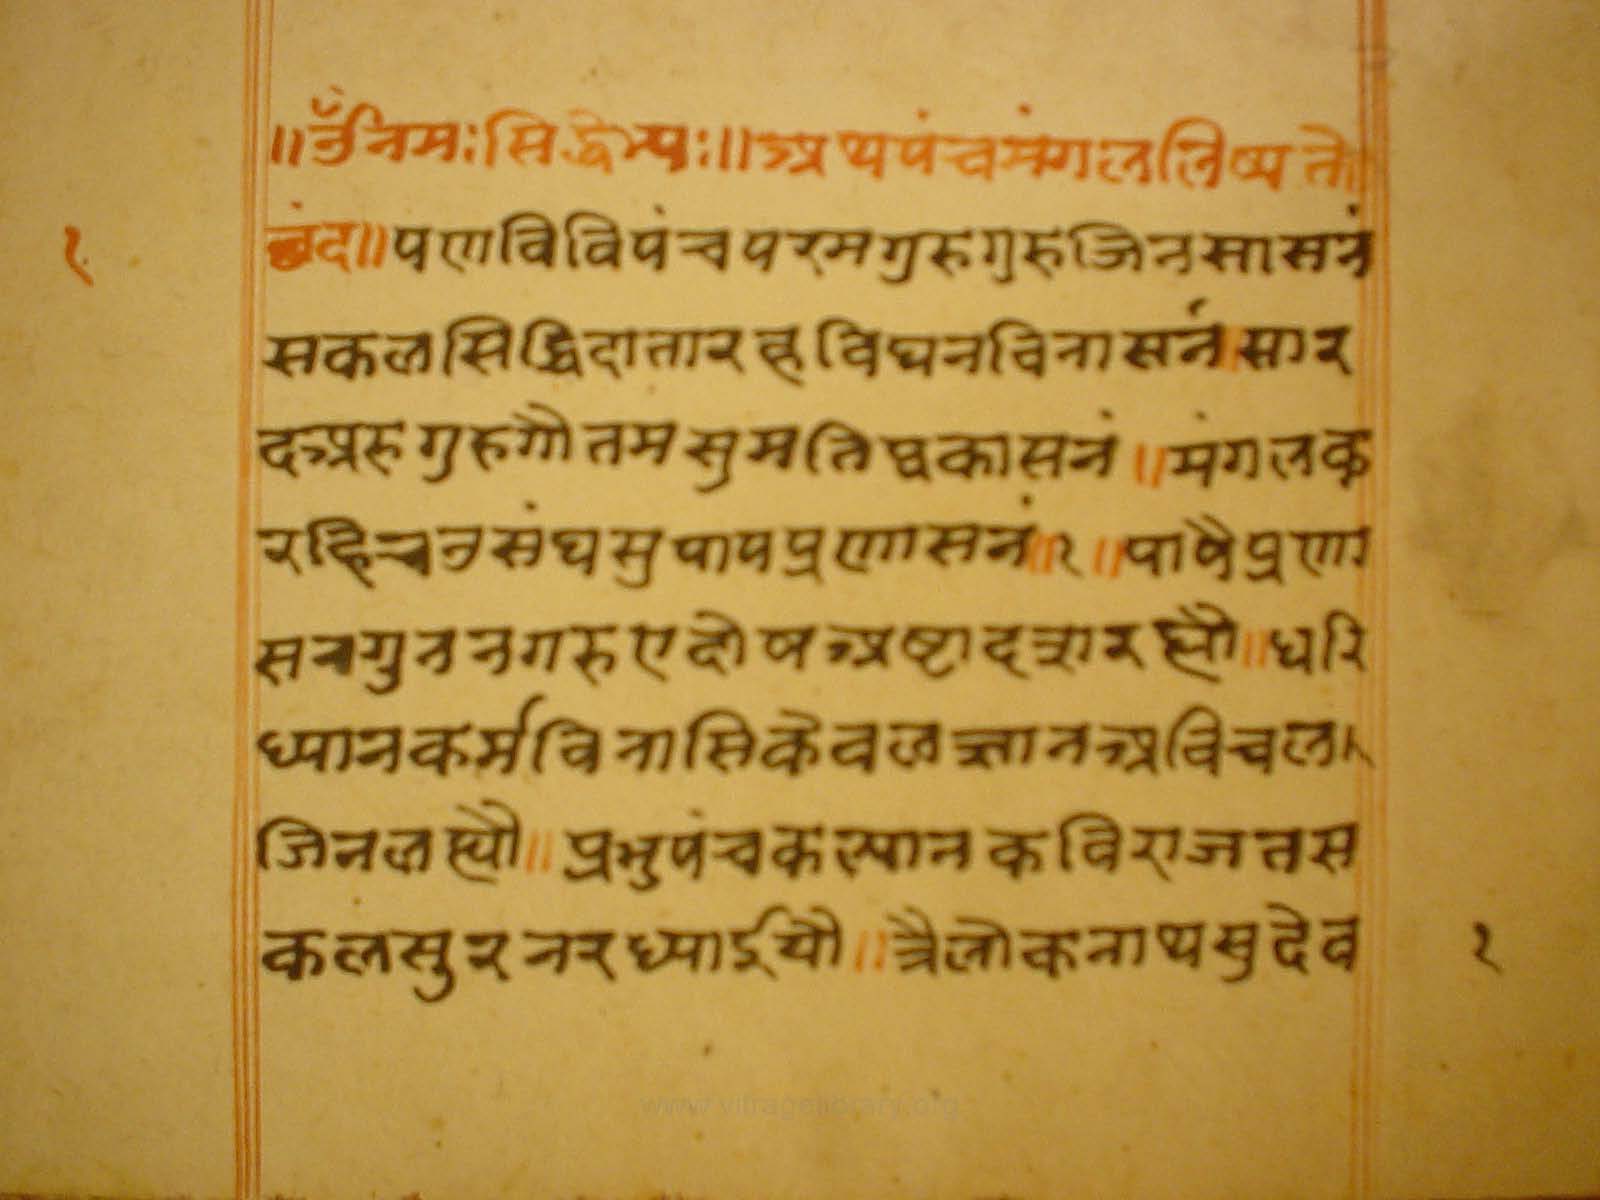 ॥ॐनमःसिद्धेभ्यः॥अथपंचमंगललिष्यते॥
१ छंद॥पणविविपंचपरमगुरुगुरुजिनसासनं
सकलसिद्धिदातारहविघनविनासनं॥सार
दअरुगुरुगौतमसुमतिप्रकासनं॥मंगलक
रहिचनसंघसुपापप्रणासनं॥१॥पापैप्रणा
सनगुननगरुएदोषअष्टादशरह्यौ॥धरि
ध्यानकर्मविनासिकेवलज्ञानअविचल।
जिनलह्यौ॥प्रभुपंचकल्यानकविराजतस
कलसुरनरध्याईयौ॥त्रैलोकनाथसुदेव १
www.vitragelibrary.org